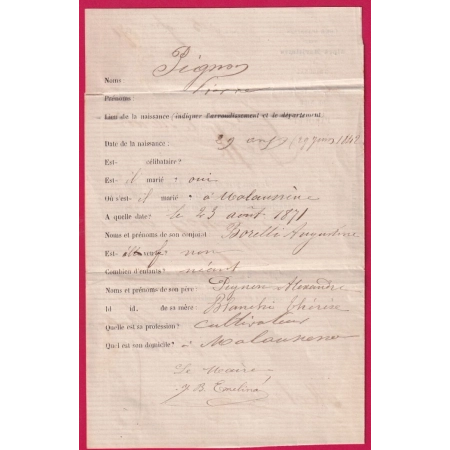 Noms
Prénoms Pierre
Lieu de la naissance (indiquer l'arrondissement et le département)
Date de la naissance : 29 ans
Est- célibataire ?
Est- il marié : oui
Où s'est- il marié : à Malaussène
A quelle date ? le 23 août 1871
Noms et prénoms de son conjoint Borelli Augustine
Est- veuf ? non
Combien d'enfants ? néant
Noms et prénoms de son père : Alexandre
Id id. de sa mère : Bianchi Thérèse
Quelle est sa profession ? cultivateur
Quel est son domicile ? à Malaussene
Le Maire
J B